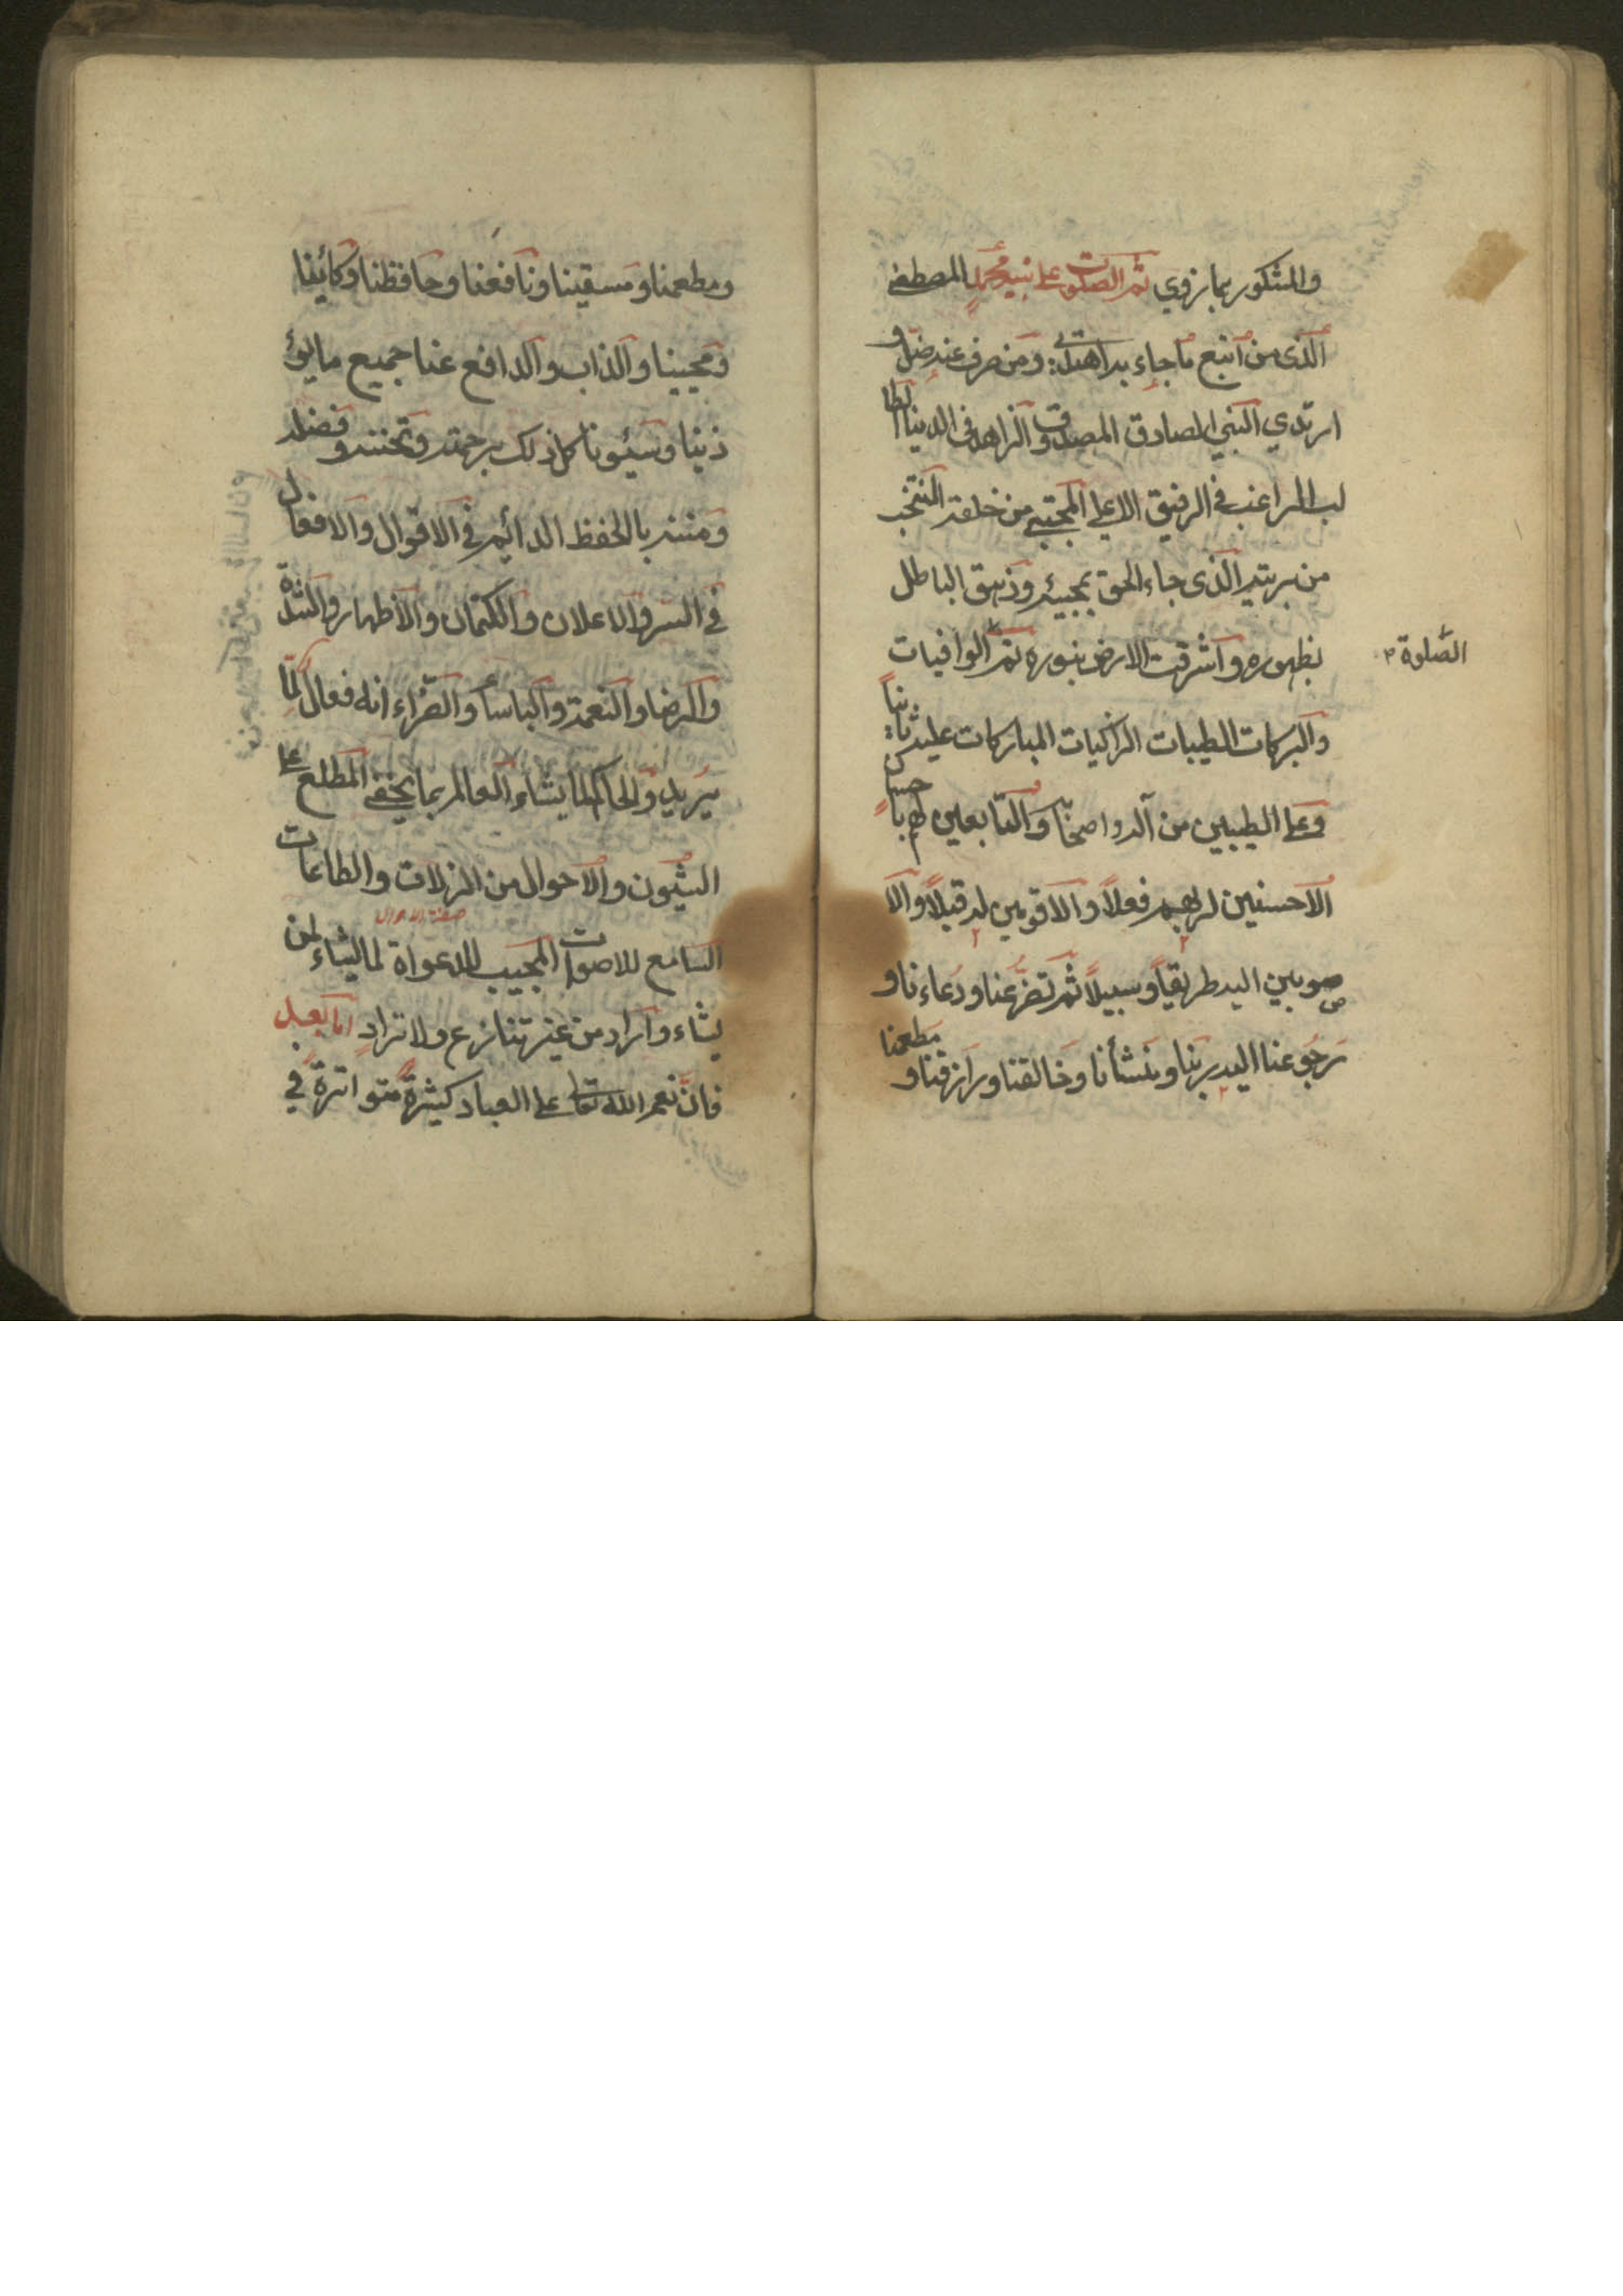 والمشكور بما زوي ثم الصلوت على نبيه محمد المصطفى
الذى من اتبع ما جاء به اهتدى ومن صرف عنه ضل و
ارتدي النبي الصادق المصدوق والزاهد فى الدنيا
لب الراغب في الرفيق الاعلى المجتبى من خلقه المنتخب
من بريته الذى جاء الحق بمجيئه وزهق الباطل
بظهوره واشرقت الارض بنوره ثم الوافيات
الصلوة
والبركات الطيبات الزاكيات المباركات عليه
وعلى الطيبين من آله واصحابه والتابعين لهم
الاحسنين لربهم فعلاً والاقومين له قيلاً والا
صوبين اليه طريقاً وسبيلاً ثم تضرعنا ودعاءنا و
رجوعنا اليه ربنا ومنشأنا وخالقنا ورازقنا و
مطعمنا
ومطعمنا ومسقينا ونافعنا وحافظنا وكائينا
ومجيبنا والذاب والدافع عنا جميع ما يوٴ
ذينا وسيئونا كل ذلك برحمته وتحننه وفضله
ومننه بالحفظ الدائم في الاقوال والافعال
في السر والاعلان والكتمان والاظهار والشدة
والرضا والنعمة والباسأ والضراء انه فعال لما
يريد والحاكم لما يشاء العالم بما يخفى المطلع على
الشيون والاحوال من الزلات والطاعات
صفة الاحوال
السامع للاصوات المجيب للدعواة لما يشاء لمن
يشاء واراد من غير تنازع ولا تراد اما بعد
فان نعم الله تعالى على العباد كثيرة متواترة في